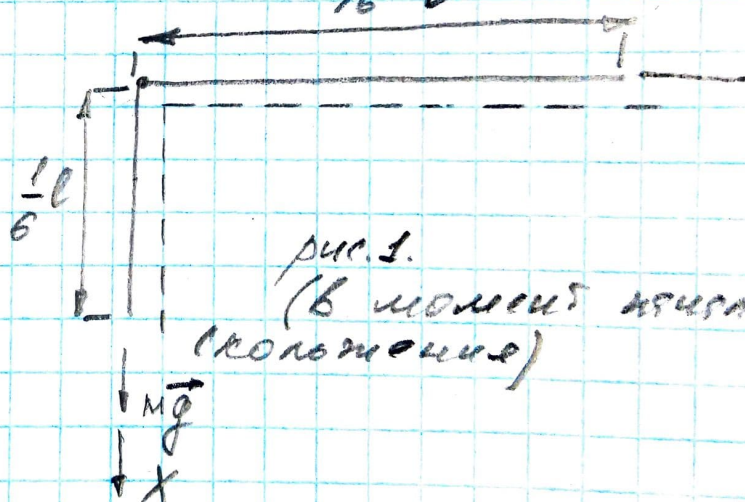 1/6 l
рис. 1.
(в момент
скольжения)
mg
X